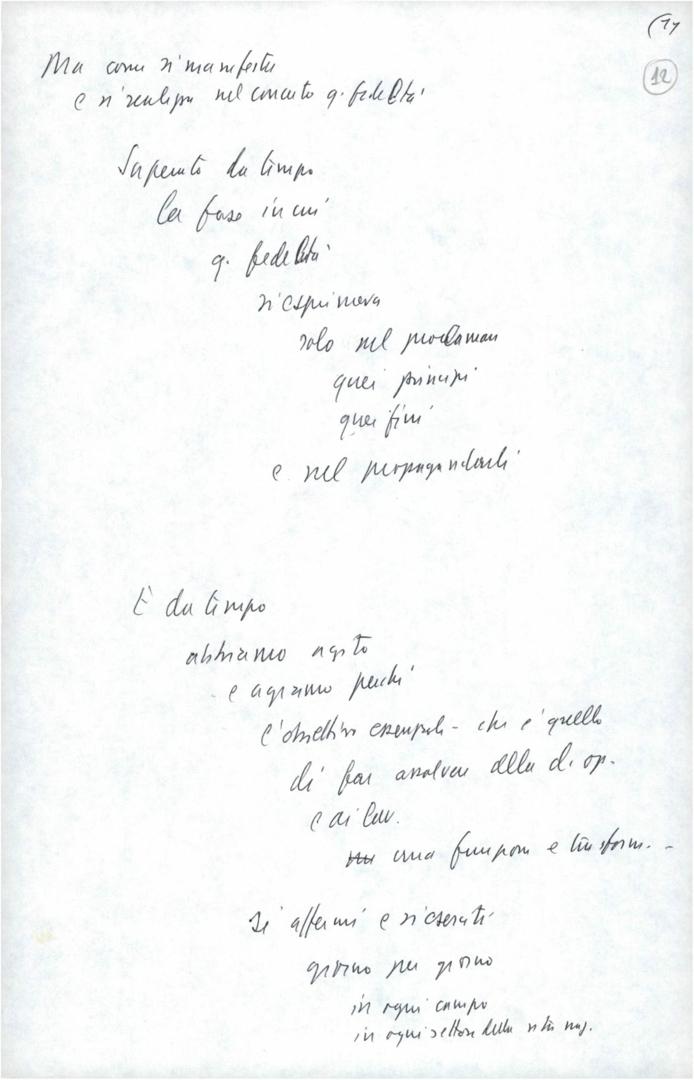 (11
12
Ma come si manifesta
e si realizza nel concreto q. fedeltà
Superata da tempo
la fase in cui
q. fedeltà
si esprimeva
solo nel proclamare
quei principi
quei fini
e nel propagandarli
È da tempo
abbiamo agito
e agiamo perché
l'obiettivo essenziale - che è quello
di far assolvere alla cl. op.
e ai lav.
una funzione e trasform. -
si affermi e si eserciti
giorno per giorno
in ogni campo
in ogni settore della vita naz.